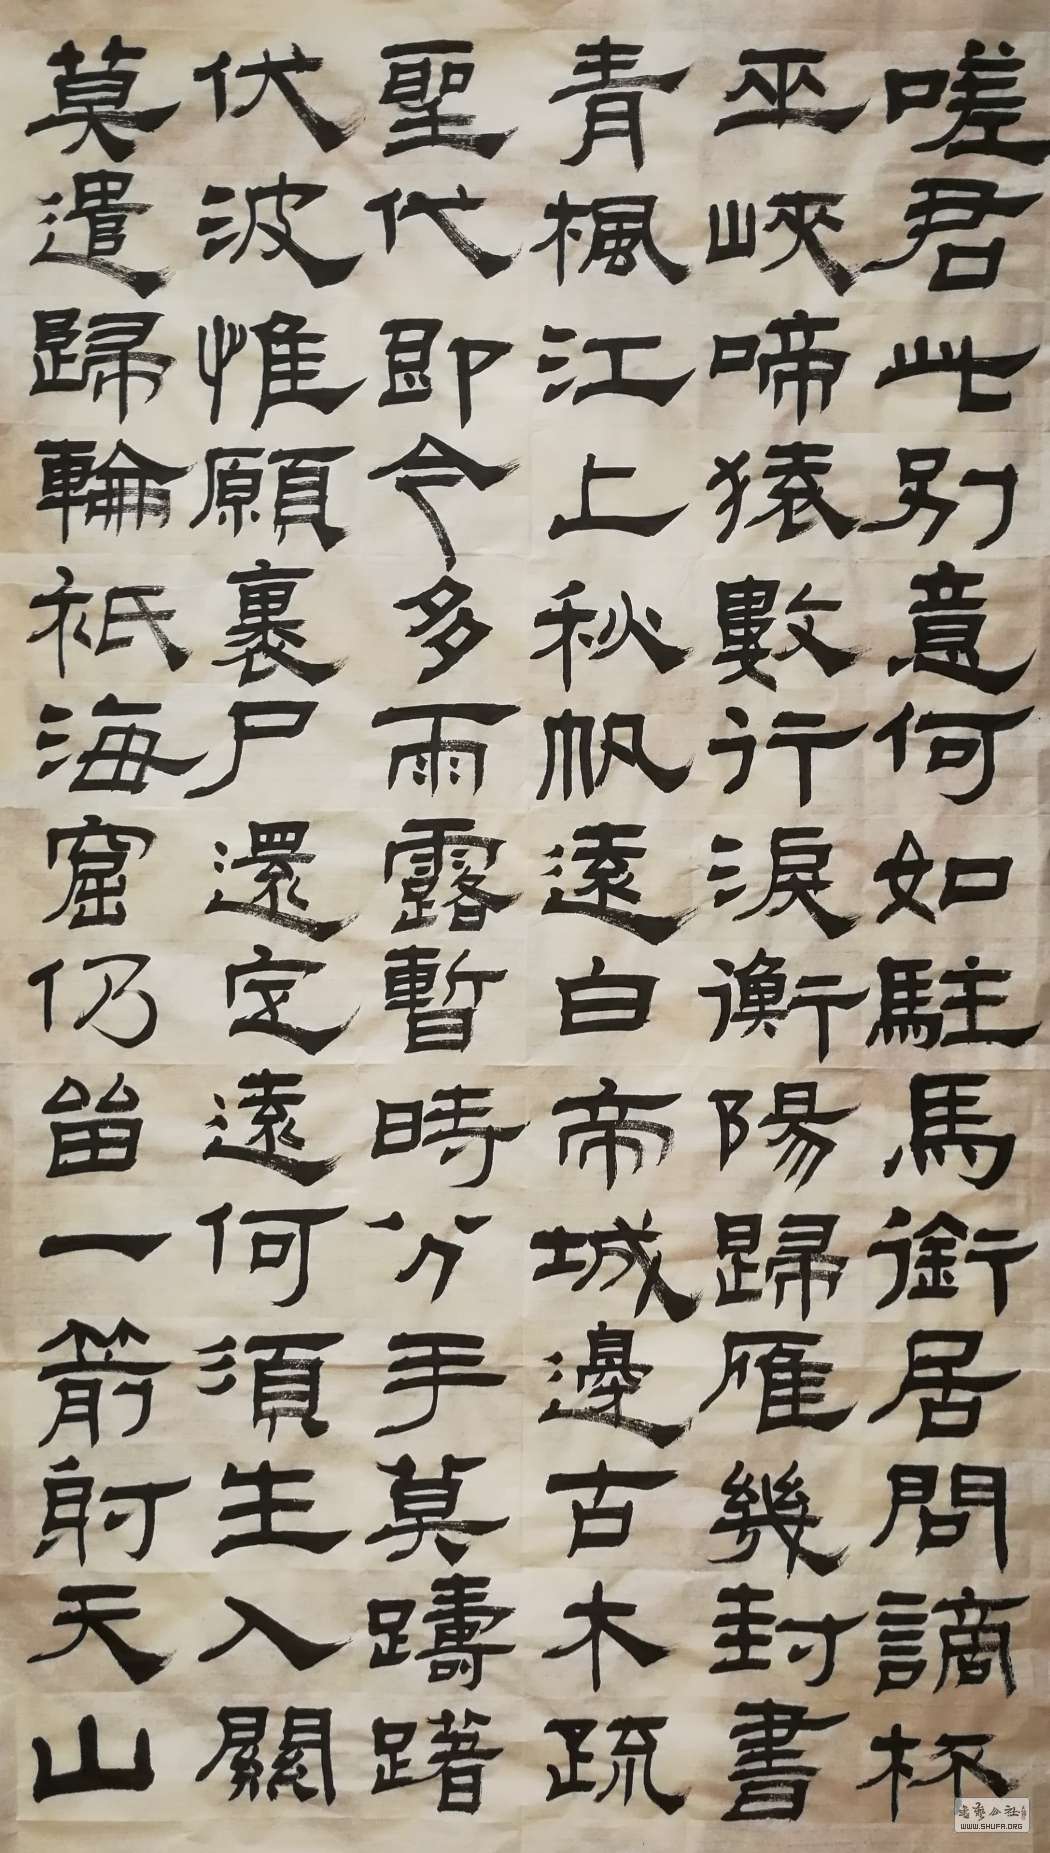 嗟君此别意何如駐馬銜居問謫杯
巫峽啼猿數行淚衡陽歸雁幾封書
青楓江上秋帆遠白帝城邊古木疏
聖代即今多雨露暫時分手莫躊躇
伏波惟願裹尸還定遠何須生入關
莫遣歸輪衹海窟仍留一箭射天山
書藝公社
WWW.SHUFA.ORG